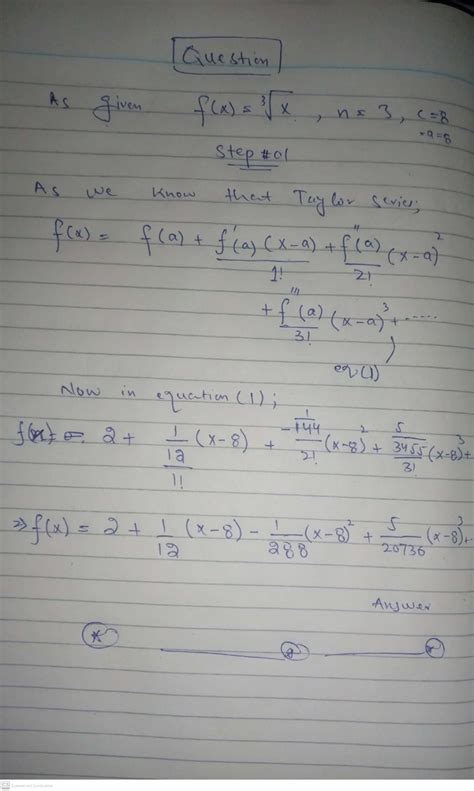 Question
As given f(x) = ∛x , n = 3 , c = 8
a = 8
Step #01
As we know that Taylor series;
f(x) = f(a) + f'(a) (x-a)/1! + f''(a)/2! (x-a)²
+ f'''(a)/3! (x-a)³ + ......
eq(1)
Now in equation (1);
f(x) = 2 + 1/12/1! (x-8) + -1/144/2! (x-8)² + 5/3455/3! (x-8)³ +
⇒ f(x) = 2 + 1/12 (x-8) - 1/288 (x-8)² + 5/20736 (x-8)³ ..
Answer